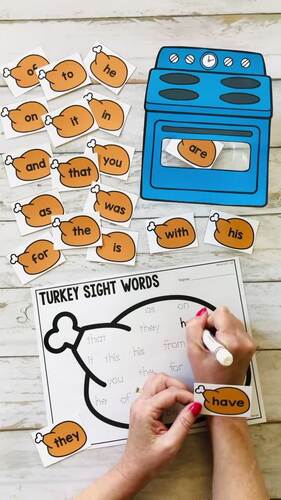 of
to
he
on
it
in
are
and
that
you
as
was
the
with
his
for
is
TURKEY SIGHT WORDS
Name:
as
on
that
they
h
it this his
from
you
the
for
he of
have
they